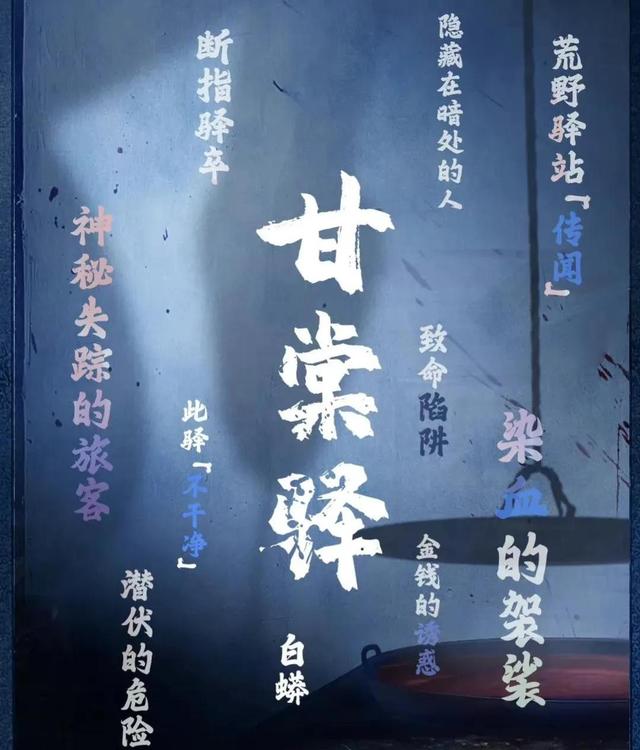 荒野驿站『传闻』
隐藏在暗处的人
断指驿卒
甘棠驿
神秘失踪的旅客
致命陷阱
此驿『不干净』
染血的袈裟
金钱的诱惑
潜伏的危险
白蟒